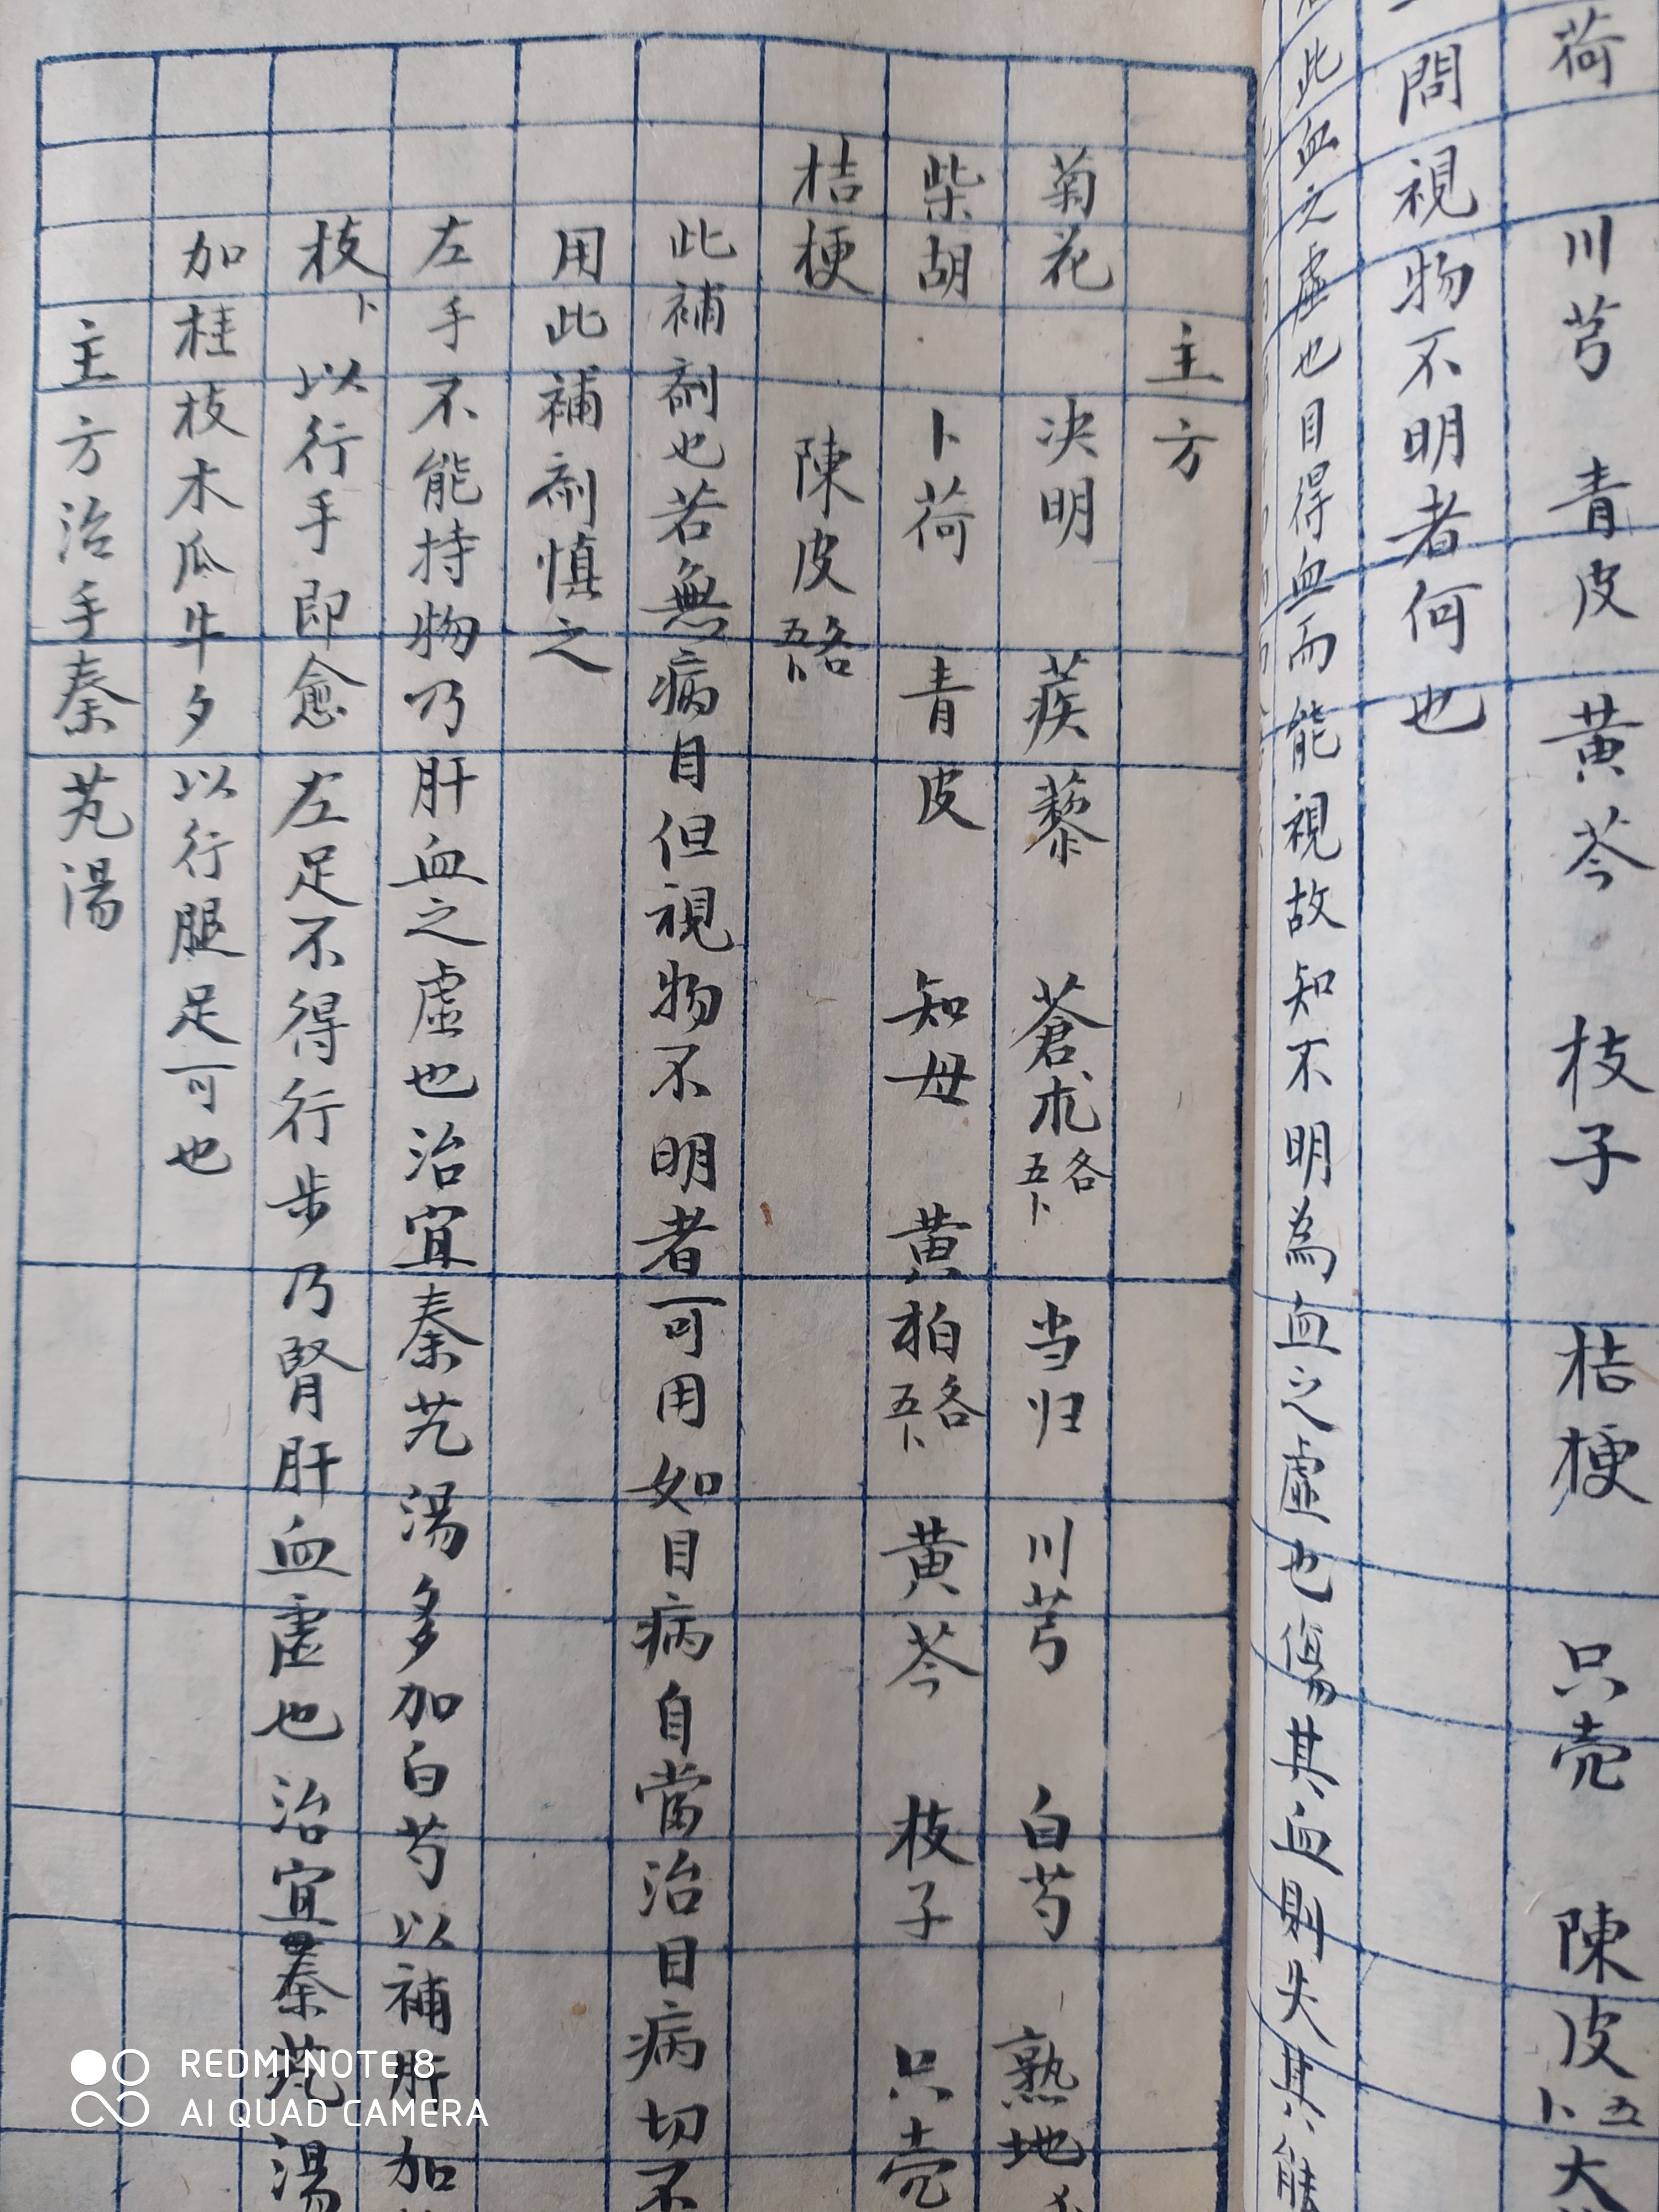 荷 川芎 青皮 黄芩 枝子 桔梗 只壳 陳皮 五卜 大
問視物不明者何也
此血之虚也目得血而能視故知不明為血之虚也傷其血則失其能
主方
菊花 决明 蒺藜 蒼朮 各五卜 当归 川芎 白芍 熟地
柴胡 卜荷 青皮 知母 黄柏 各五卜 黄芩 枝子 只壳
桔梗 陳皮 各五卜
此補剤也若無病目但視物不明者可用如目病自當治目病切不
用此補剤慎之
左手不能持物乃肝血之虚也治宜秦艽湯多加白芍以補肝加
枝卜以行手即愈左足不得行步乃腎肝血虚也治宜秦艽湯
加桂枝木瓜牛夕以行腿足可也
主方治手秦艽湯
REDMI NOTE 8
AI QUAD CAMERA